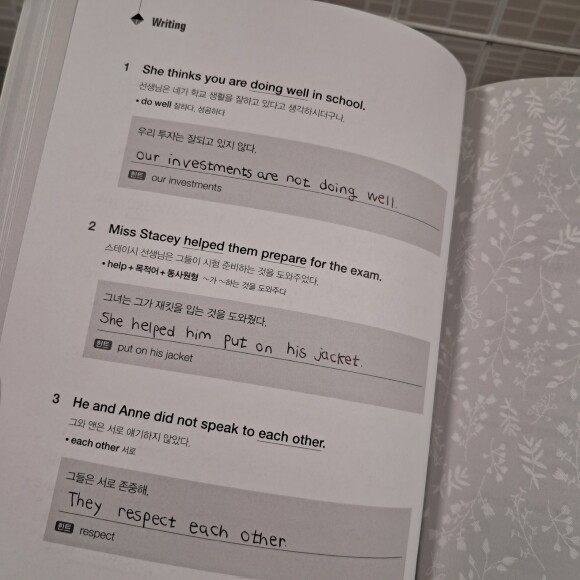 Writing
1 She thinks you are doing well in school.
선생님은 네가 학교 생활을 잘하고 있다고 생각하시더구나.
• do well 잘하다, 성공하다
우리 투자는 잘되고 있지 않다.
our investments are not doing well.
힌트 our investments
2 Miss Stacey helped them prepare for the exam.
스테이시 선생님은 그들이 시험 준비하는 것을 도와주었다.
• help + 목적어 + 동사원형 ~가 ~하는 것을 도와주다
그녀는 그가 재킷을 입는 것을 도와줬다.
She helped him put on his jacket.
힌트 put on his jacket
3 He and Anne did not speak to each other.
그와 앤은 서로 얘기하지 않았다.
• each other 서로
그들은 서로 존중해.
They respect each other.
힌트 respect